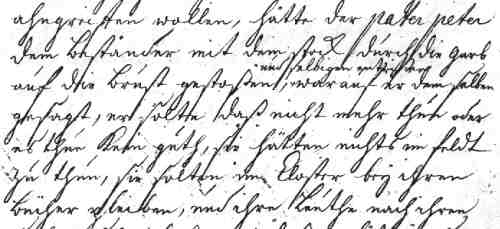 angreiffen wollen, hätte der pater peter
dem beständer mit dem stock durch die garb
auf die brust gestoßen, worauf er dem selben
gesagt, er solte daß nicht mehr thun oder
es thue kein guth, sie hätten nichts im feldt
zu thun, sie solten im Closter bey ihren
bücher bleiben, und ihre leuthe nach ihren